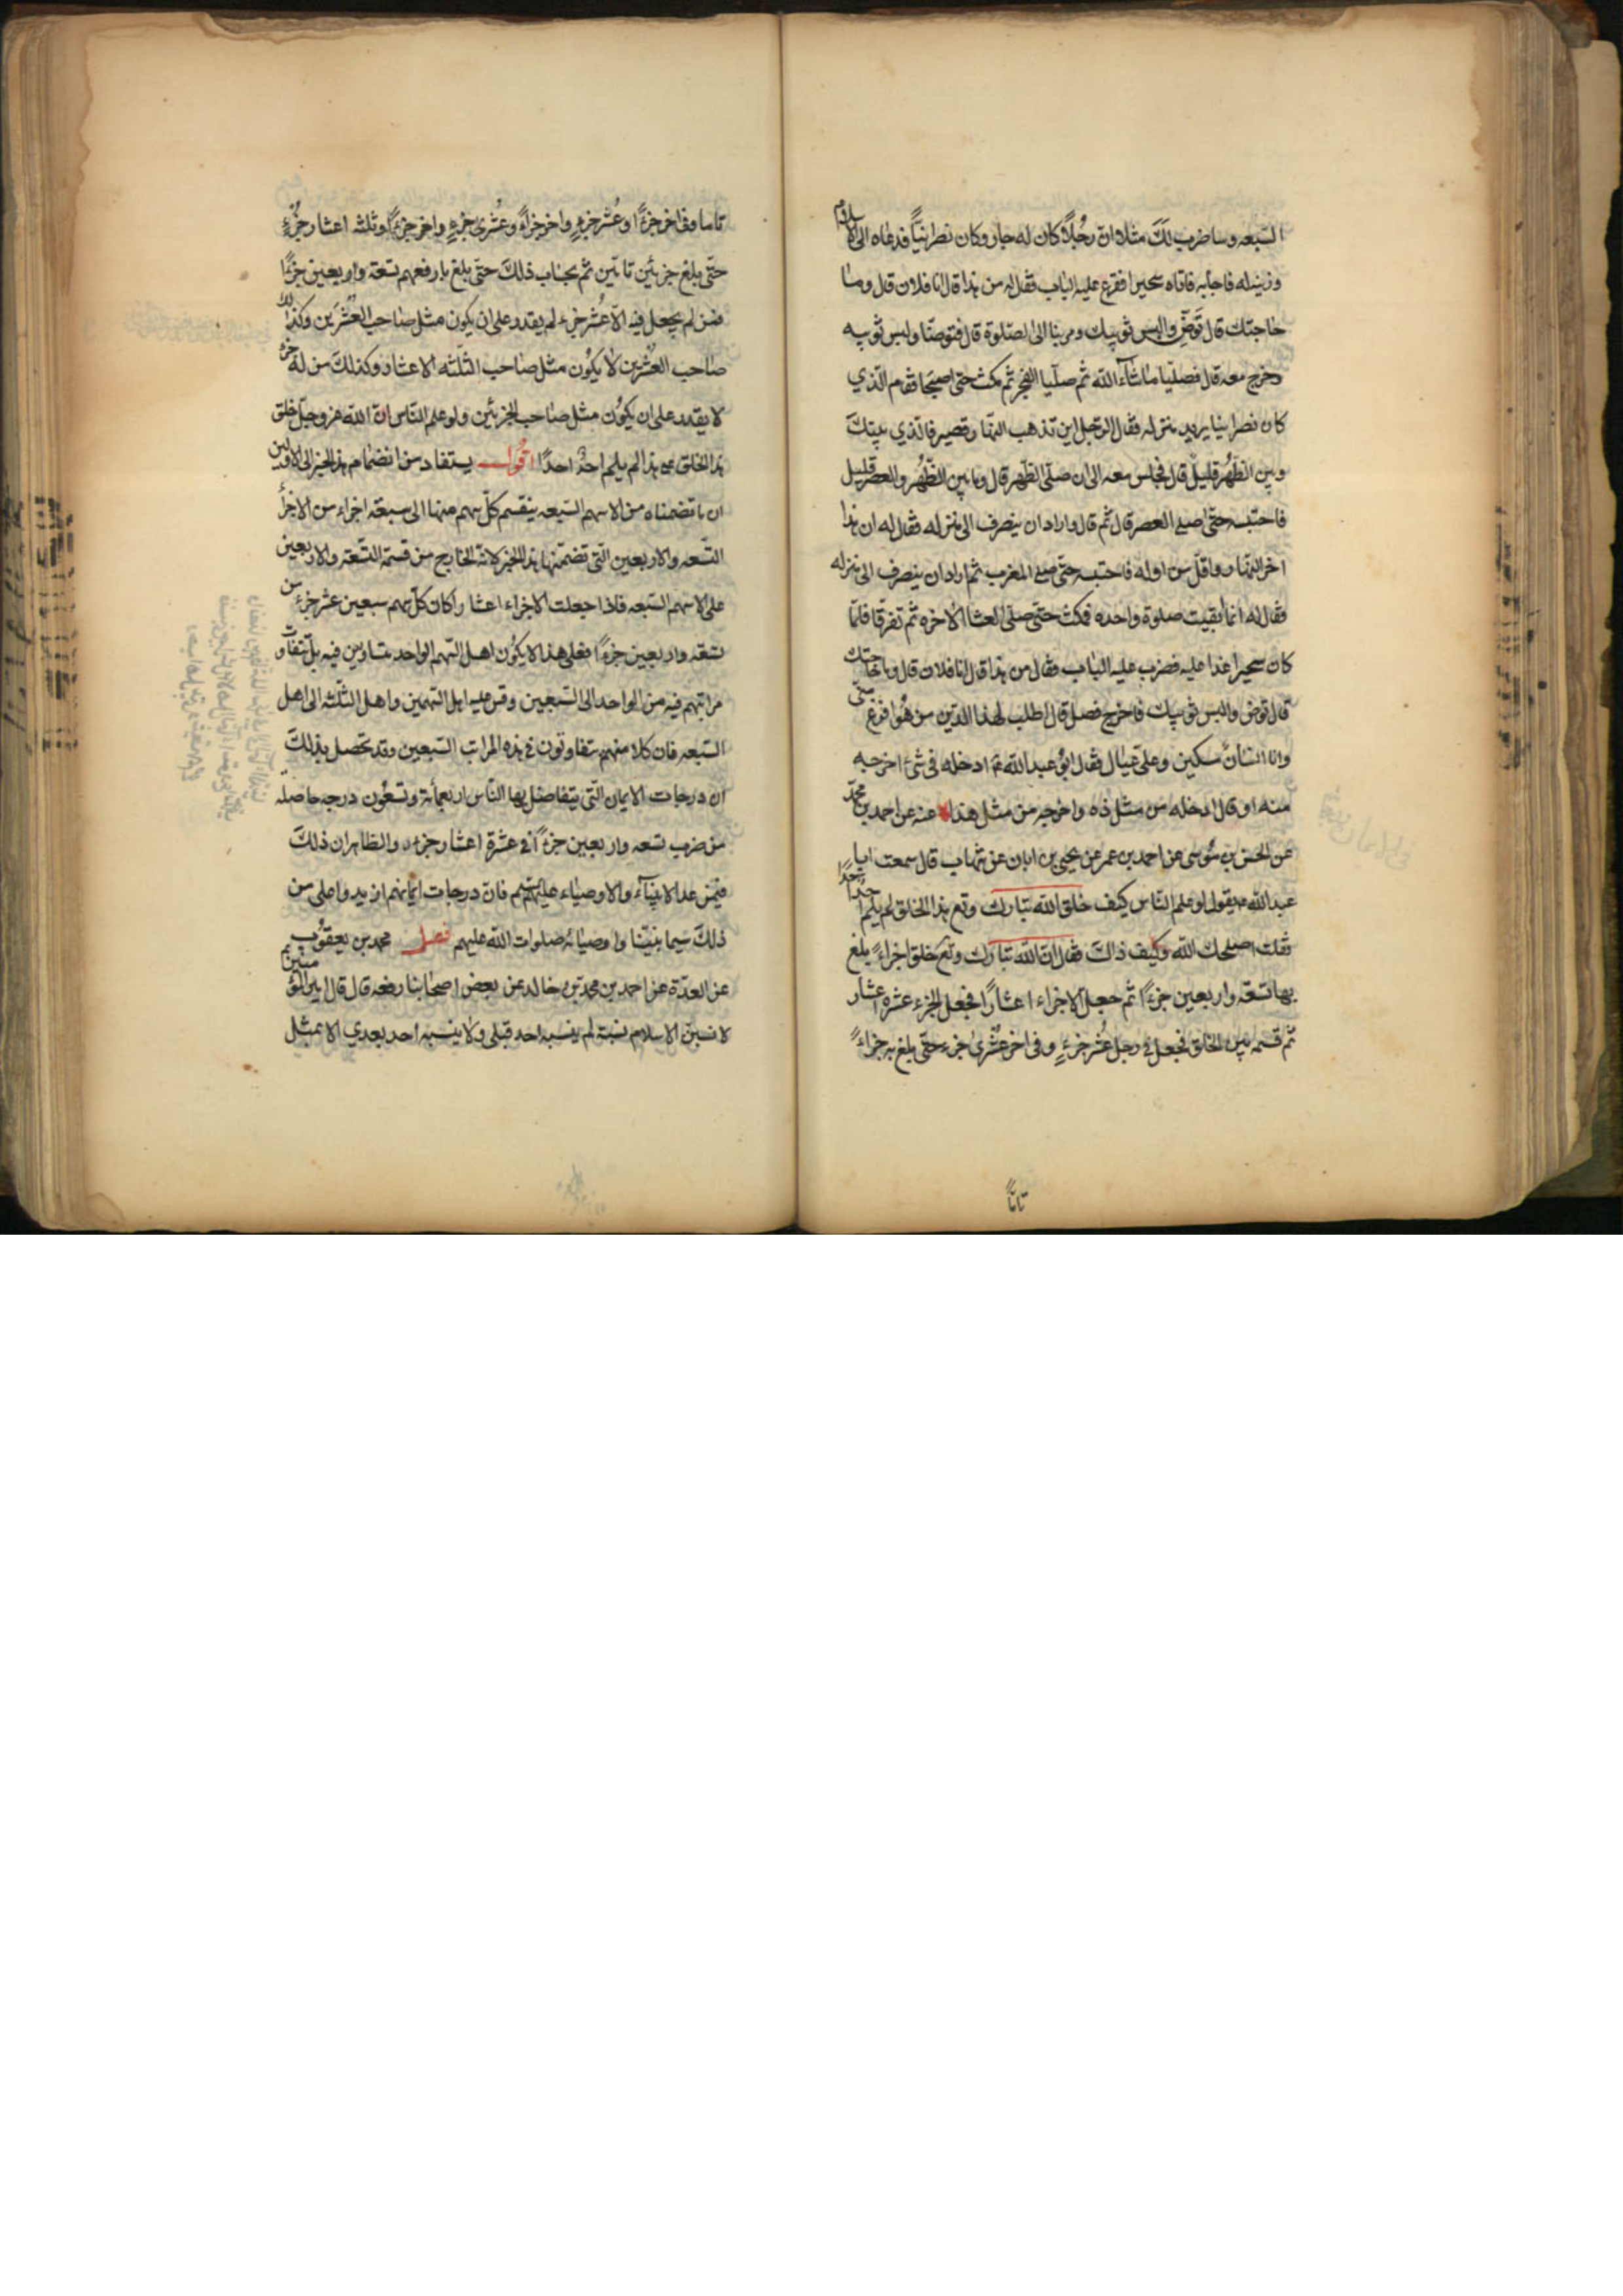 السبعه وساضرب لك مثلا ان رجلا كان له جار وكان نصرانيا فدعاه الى الاسلام
وزينه له فاجابه فاتاه سحيرا فقرع عليه الباب فقال له من هذا قال انا فلان قال وما
حاجتك قال توضّ والبس ثوبيك ومر بنا الى الصلوة قال فتوضا ولبس ثوبيه
وخرج معه قال فصليا ما شاء الله ثم صليا الفجر ثم مكث حتى اصبحا فقام الذي
كان نصرانيا يريد منزله فقال الرجل اين تذهب النهار قصير فالذي بينك
وبين الظهر قليل قال فجلس معه الى ان صلى الظهر قال وما بين الظهر والعصر قليل
فاحتبسه حتى صلى العصر قال ثم قال واراد ان ينصرف الى منزله فقال له ان هذا
اخر النهار واقل من اوله فاحتبسه حتى صلى المغرب ثم اراد ان ينصرف الى منزله
فقال له انما بقيت صلوة واحده فمكث حتى صلى العشا الاخرة ثم تفرقا فلما
كان سحيرا غدا عليه فضرب عليه الباب فقال من هذا قال انا فلان قال وما حاجتك
قال توض والبس ثوبيك فاخرج فصل قال اطلب لهذا الدين من هو افرغ مني
وانا انسان مسكين وعلي عيال فقال ابو عبدالله ع ادخله في شئ اخرجه
منه او قال ادخله من مثل ذه واخرجه من مثل هذا عنه عن احمد بن محمد
عن الحسن بن موسى عن احمد بن عمر عن يحيى بن ابان عن شهاب قال سمعت ابا
عبدالله ع يقول لو علم الناس كيف خلق الله تبارك وتع هذا الخلق لم يلم احد احدا
فقلت اصلحك الله وكيف ذاك فقال ان الله تبارك وتع خلق اجزاء بلغ
بها تسعة واربعين جزءا ثم جعل الاجزاء اعشارا فجعل الجزء عشرة اعشار
ثم قسمه بين الخلق فجعل في رجل عشر جزء وفي اخر عشري جزء حتى بلغ به جزاء
تامّا
تاما وفي اخر جزءا وعشر جزء واخر جزاء وعشري جزء واخر جزءا وثلثه اعشار جزء
حتى بلغ جزئين تامين ثم بحساب ذلك حتى بلغ بارفعهم تسعة واربعين جزءا
فمن لم يجعل فيه الا عشر جزء لم يقدر على ان يكون مثل صاحب العشرين وكذلك
صاحب العشرين لا يكون مثل صاحب الثلثه الاعشار وكذلك من له جزء
لا يقدر على ان يكون مثل صاحب الجزئين ولو علم الناس ان الله عز وجل خلق
هذا الخلق على هذا لم يلم احد احدا اقول يستفاد من انضمام هذا الخبر الى الاولين
ان ما تضمناه من الاسهم السبعه ينقسم كل سهم منها الى سبعة اجزاء من الاجزاء
التسعه والاربعين التي تضمنها هذا الخبر لانه الخارج من قسمة التسعة والاربعين
على الاسهم السبعه فاذا جعلت الاجزاء اعشارا كان كل سهم سبعين عشر جزء من
تسعة واربعين جزءا فعلى هذا لا يكون اهل السهم الواحد متساويين فيه بل تتفاوت
مراتبهم فيه من الواحد الى السبعين وقس عليه اهل السهمين واهل الثلثه الى اهل
السبعه فان كلا منهم متفاوتون في هذه المراتب السبعين وقد تحصل بذلك
ان درجات الايمان التي يتفاضل بها الناس اربعمائة وتسعون درجه حاصله
من ضرب تسعه واربعين جزءا في عشرة اعشار جزء والظاهر ان ذلك
فيمن عدا الانبياء والاوصياء عليهم فان درجات ايمانهم ازيد واعلى من
ذلك سيما نبينا واوصيائه صلوات الله عليهم فصل محمد بن يعقوب
عن العدة عن احمد بن محمد بن خالد عن بعض اصحابنا رفعه قال قال امير المؤمنين ع
لانسبن الاسلام نسبة لم ينسبه احد قبلي ولا ينسبه احد بعدي الا بمثل